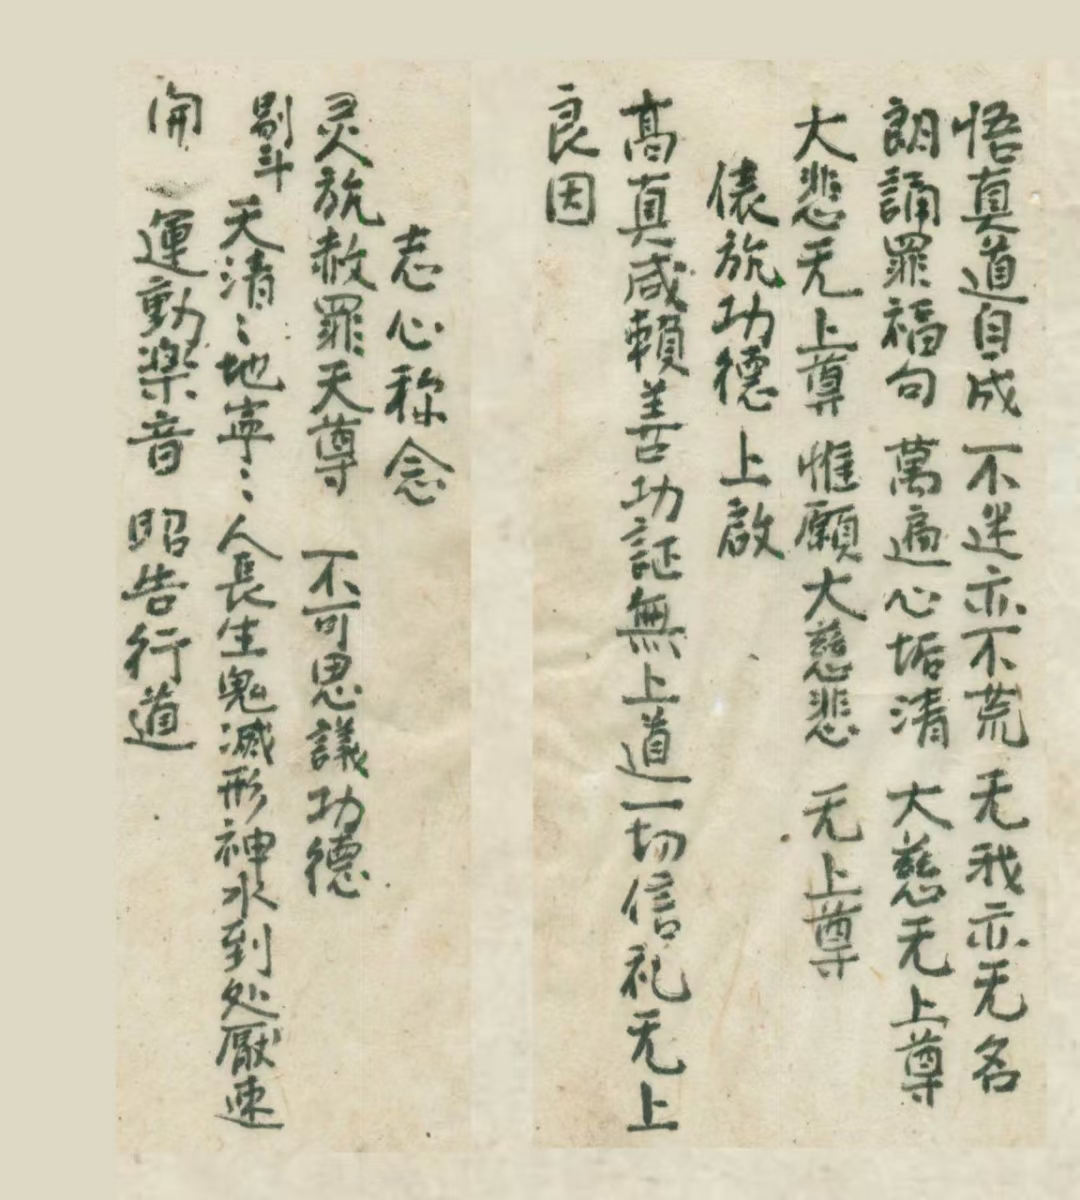 悟真道自成 不迷亦不荒 无我亦无名
朗誦罪福句 萬遍心垢清 大慈无上尊
大悲无上尊 惟願大慈悲 无上尊
俵旅功德 上啟
高真咸賴善功証無上道一切信礼无上
良因
志心称念
灵旅赦罪天尊 不可思議功德
斗 天清〻地寧〻人長生鬼滅形神水到处厭速
開 運動楽音 昭告行道